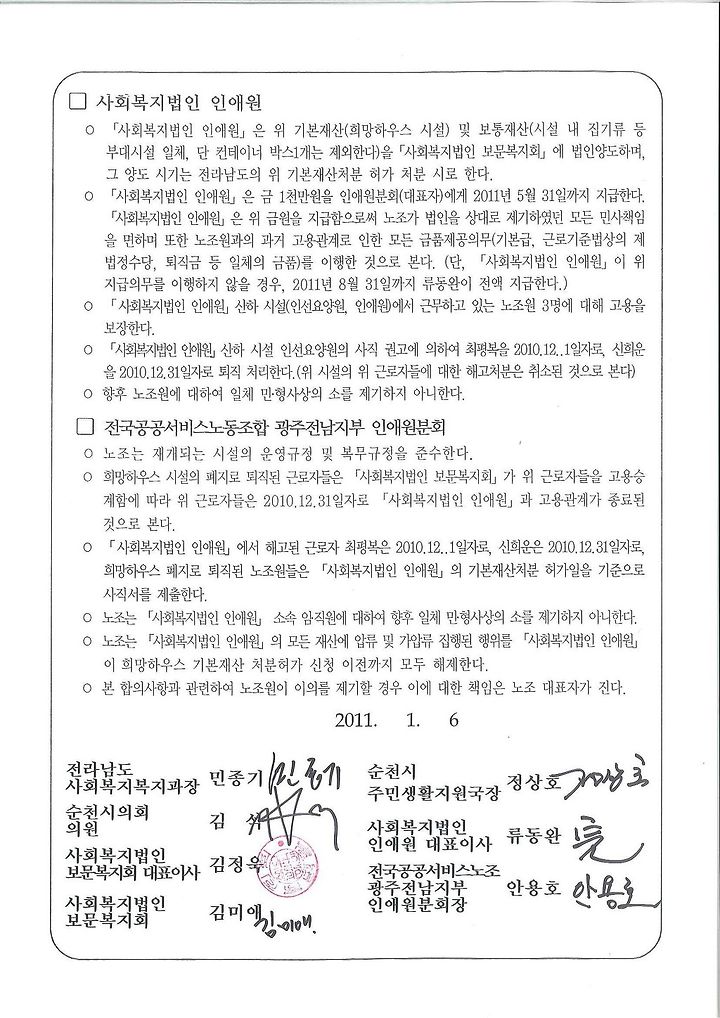 □ 사회복지법인 인애원
○ 「사회복지법인 인애원」은 위 기본재산(희망하우스 시설) 및 보통재산(시설 내 집기류 등
부대시설 일체, 단 컨테이너 박스1개는 제외한다)을「사회복지법인 보문복지회」에 법인양도하며,
그 양도 시기는 전라남도의 위 기본재산처분 허가 처분 시로 한다.
○ 「사회복지법인 인애원」은 금 1천만원을 인애원분회(대표자)에게 2011년 5월 31일까지 지급한다.
「사회복지법인 인애원」은 위 금원을 지급함으로써 노조가 법인을 상대로 제기하였던 모든 민사책임
을 면하며 또한 노조원과의 과거 고용관계로 인한 모든 금품제공의무(기본급, 근로기준법상의 제
법정수당, 퇴직금 등 일체의 금품)를 이행한 것으로 본다. (단, 「사회복지법인 인애원」이 위
지급의무를 이행하지 않을 경우, 2011년 8월 31일까지 류동완이 전액 지급한다.)
○ 「사회복지법인 인애원」산하 시설(인선요양원, 인애원)에서 근무하고 있는 노조원 3명에 대해 고용을
보장한다.
○ 「사회복지법인 인애원」산하 시설 인선요양원의 사직 권고에 의하여 최평복을 2010.12..1일자로, 신희운
을 2010.12.31일자로 퇴직 처리한다.(위 시설의 위 근로자들에 대한 해고처분은 취소된 것으로 본다)
○ 향후 노조원에 대하여 일체 만·형사상의 소를 제기하지 아니한다.
□ 전국공공서비스노동조합 광주전남지부 인애원분회
○ 노조는 재개되는 시설의 운영규정 및 복무규정을 준수한다.
○ 희망하우스 시설의 폐지로 퇴직된 근로자들은 「사회복지법인 보문복지회」가 위 근로자들을 고용승
계함에 따라 위 근로자들은 2010.12.31일자로 「사회복지법인 인애원」과 고용관계가 종료된
것으로 본다.
○ 「사회복지법인 인애원」에서 해고된 근로자 최평복은 2010.12..1일자로, 신희운은 2010.12.31일자로,
희망하우스 폐지로 퇴직된 노조원들은 「사회복지법인 인애원」의 기본재산처분 허가일을 기준으로
사직서를 제출한다.
○ 노조는 「사회복지법인 인애원」 소속 임·직원에 대하여 향후 일체 만·형사상의 소를 제기하지 아니한다.
○ 노조는 「사회복지법인 인애원」의 모든 재산에 압류 및 가압류 집행된 행위를 「사회복지법인 인애원」
이 희망하우스 기본재산 처분허가 신청 이전까지 모두 해제한다.
○ 본 합의사항과 관련하여 노조원이 이의를 제기할 경우 이에 대한 책임은 노조 대표자가 진다.
2011. 1. 6
전라남도
사회복지복지과장 민종기 민종기
순천시
주민생활지원국장 정상호
순천시의회
의원 김 석
사회복지법인
인애원 대표이사 류동완
사회복지법인
보문복지회 대표이사 김정욱
전국공공서비스노조
광주전남지부
인애원분회장 안용호 안용호
사회복지법인
보문복지회 김미애 김미애.